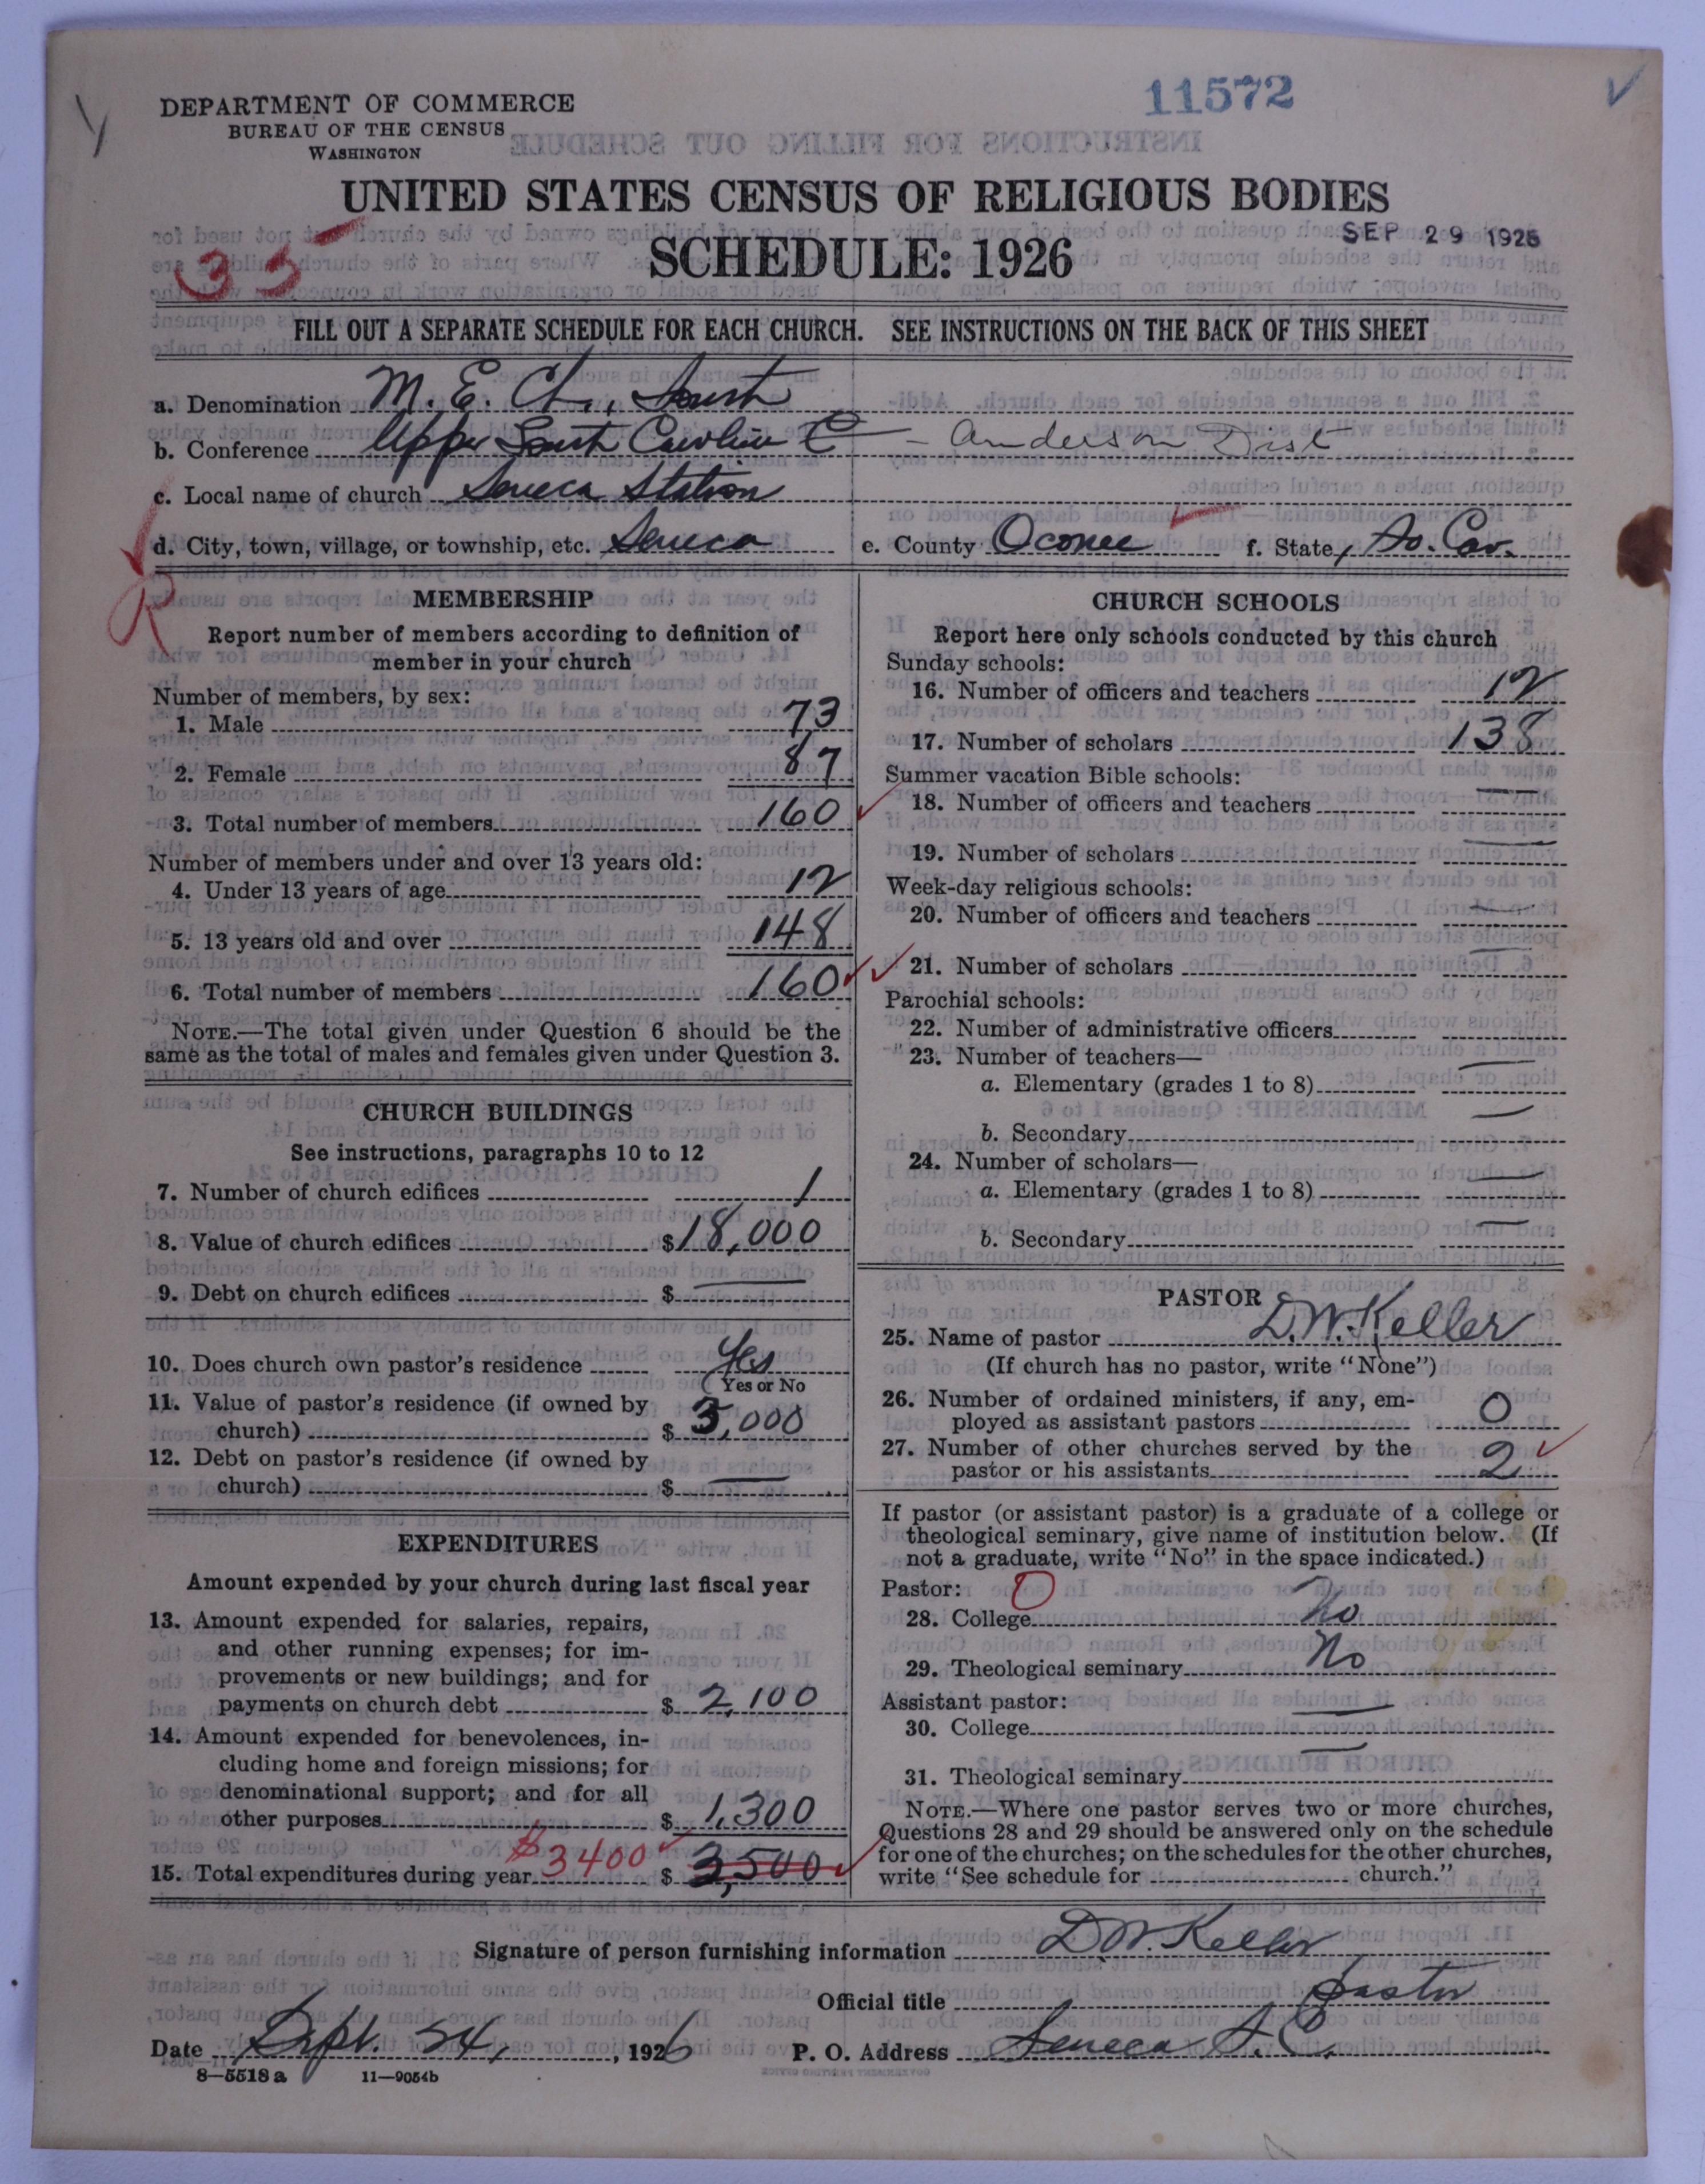 11572
DEPARTMENT OF COMMERCE
BUREAU OF THE CENSUS
WASHINGTON
UNITED STATES CENSUS OF RELIGIOUS BODIES
SCHEDULE: 1926
SEP 29 1926
35
FILL OUT A SEPARATE SCHEDULE FOR EACH CHURCH. SEE INSTRUCTIONS ON THE BACK OF THIS SHEET
a. Denomination M. E. Ch., South
b. Conference Upper South Carolina C - Anderson Dist
c. Local name of church Seneca Station
d. City, town, village, or township, etc. Seneca e. County Oconee f. State, So. Car.
R
MEMBERSHIP
Report number of members according to definition of
member in your church
Number of members, by sex:
1. Male 73
2. Female 87
3. Total number of members 160
Number of members under and over 13 years old:
4. Under 13 years of age 12
5. 13 years old and over 148
6. Total number of members 160
NOTE.—The total given under Question 6 should be the
same as the total of males and females given under Question 3.
CHURCH BUILDINGS
See instructions, paragraphs 10 to 12
7. Number of church edifices 1
8. Value of church edifices $18,000
9. Debt on church edifices $ —
10. Does church own pastor's residence Yes
(Yes or No
11. Value of pastor's residence (if owned by
church) $ 3,000
12. Debt on pastor's residence (if owned by
church) $ —
EXPENDITURES
Amount expended by your church during last fiscal year
13. Amount expended for salaries, repairs,
and other running expenses; for im-
provements or new buildings; and for
payments on church debt $ 2,100
14. Amount expended for benevolences, in-
cluding home and foreign missions; for
denominational support; and for all
other purposes $ 1,300
15. Total expenditures during year $3400 $ 3,500
CHURCH SCHOOLS
Report here only schools conducted by this church
Sunday schools:
16. Number of officers and teachers 12
17. Number of scholars 138
Summer vacation Bible schools:
18. Number of officers and teachers —
19. Number of scholars —
Week-day religious schools:
20. Number of officers and teachers —
21. Number of scholars —
Parochial schools:
22. Number of administrative officers
23. Number of teachers—
a. Elementary (grades 1 to 8) —
b. Secondary —
24. Number of scholars—
a. Elementary (grades 1 to 8) —
b. Secondary —
PASTOR
25. Name of pastor D. W. Keller
(If church has no pastor, write "None")
26. Number of ordained ministers, if any, em-
ployed as assistant pastors 0
27. Number of other churches served by the
pastor or his assistants 2
If pastor (or assistant pastor) is a graduate of a college or
theological seminary, give name of institution below. (If
not a graduate, write "No" in the space indicated.)
Pastor: 0
28. College No
29. Theological seminary No
Assistant pastor:
30. College —
31. Theological seminary —
NOTE.—Where one pastor serves two or more churches,
Questions 28 and 29 should be answered only on the schedule
for one of the churches; on the schedules for the other churches,
write "See schedule for church."
Signature of person furnishing information D. W. Keller
Official title pastor
Date Sept. 24, 1926 P. O. Address Seneca S. C.
8—5518 a 11—9054b